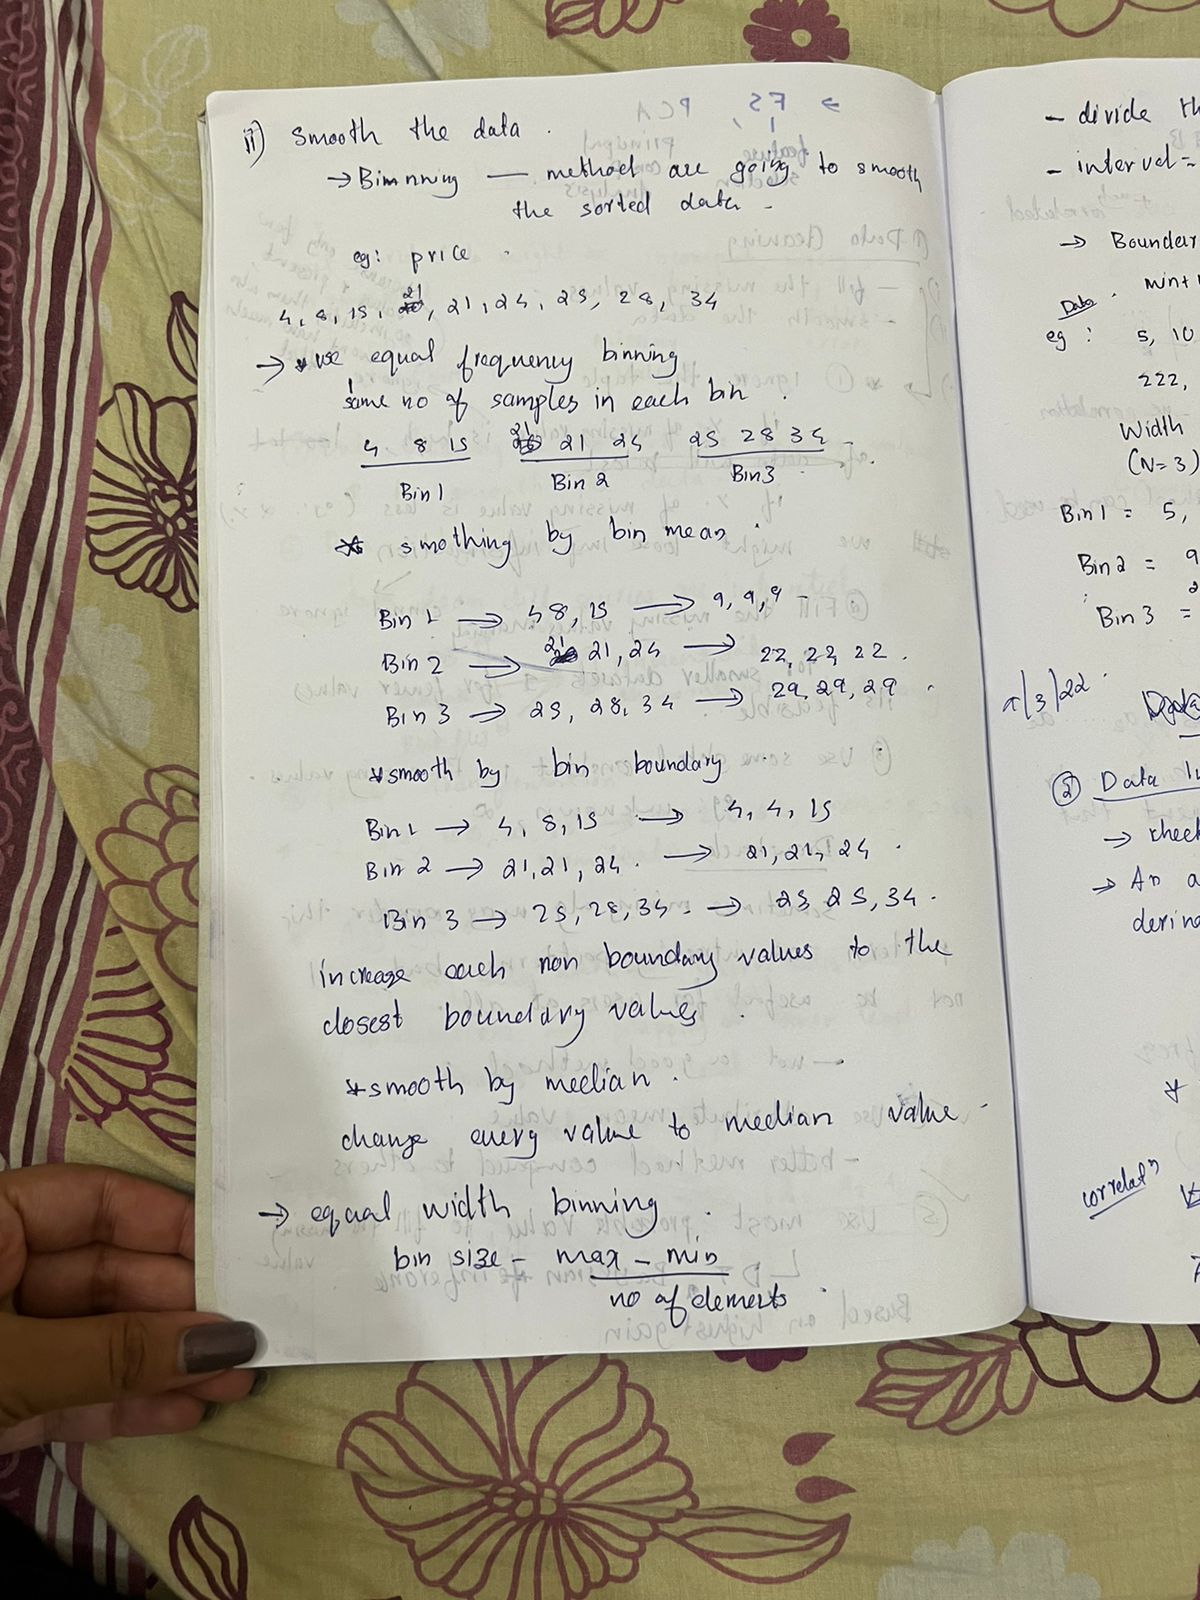 ii) Smooth the data .
→ Binnning — method are going to smooth
the sorted data -
eg: price .
4, 8, 15, 21, 21, 24, 25, 28, 34
→ * use equal frequency binning
same no of samples in each bin .
4 8 15 21 21 24 25 28 34
Bin 1 Bin 2 Bin 3
* smothing by bin mean :
Bin 1 → 4 8, 15 → 9, 9, 9 -
Bin 2 → 21 21, 24 → 22, 22, 22 .
Bin 3 → 25, 28, 34 → 29, 29, 29 .
* smooth by bin boundary .
Bin 1 → 4, 8, 15 → 4, 4, 15
Bin 2 → 21, 21, 24 . → 21, 21, 24 .
Bin 3 → 25, 28, 34 - → 25, 25, 34 .
increase each non boundary values to the
closest boundary values .
* smooth by median .
change every value to median value -
→ equal width binning .
bin size - max - min
no of elements .
- divide
- interval =
→
min +
Data
eg : 5, 10
222,
Width
(N=3)
Bin 1 = 5,
Bin 2 = 9
Bin 3 =
/3/22 .
② Data
→
→ An
correlatn